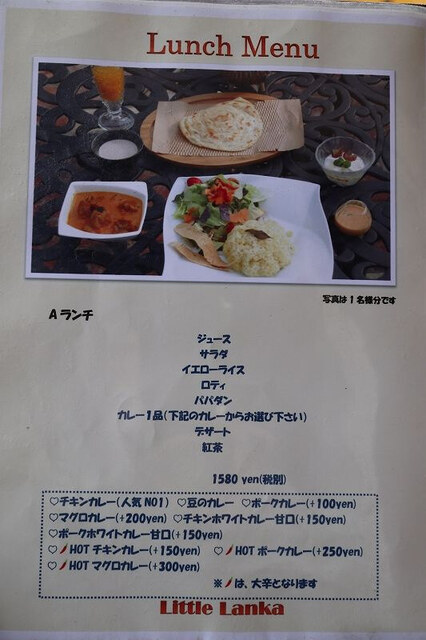 Lunch Menu
写真は1名様分です
Aランチ
ジュース
サラダ
イエローライス
ロティ
パパダン
カレー1品(下記のカレーからお選び下さい)
デザート
紅茶
1580 yen(税別)
♡チキンカレー(人気 NO1) ♡豆のカレー ♡ポークカレー(+100yen)
♡マグロカレー(+200yen) ♡チキンホワイトカレー甘口(+150yen)
♡ポークホワイトカレー甘口(+150yen)
♡🌶HOT チキンカレー(+150yen) ♡🌶HOT ポークカレー(+250yen)
♡🌶HOT マグロカレー(+300yen)
※🌶は、大辛となります
Little Lanka